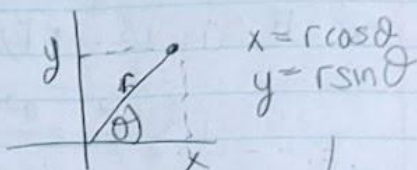 y
r
θ
x
x = r cos θ
y = r sin θ